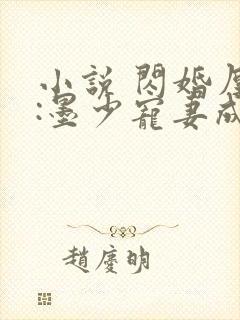 小說 閃婚
:墨少寵妻成
趙慶明